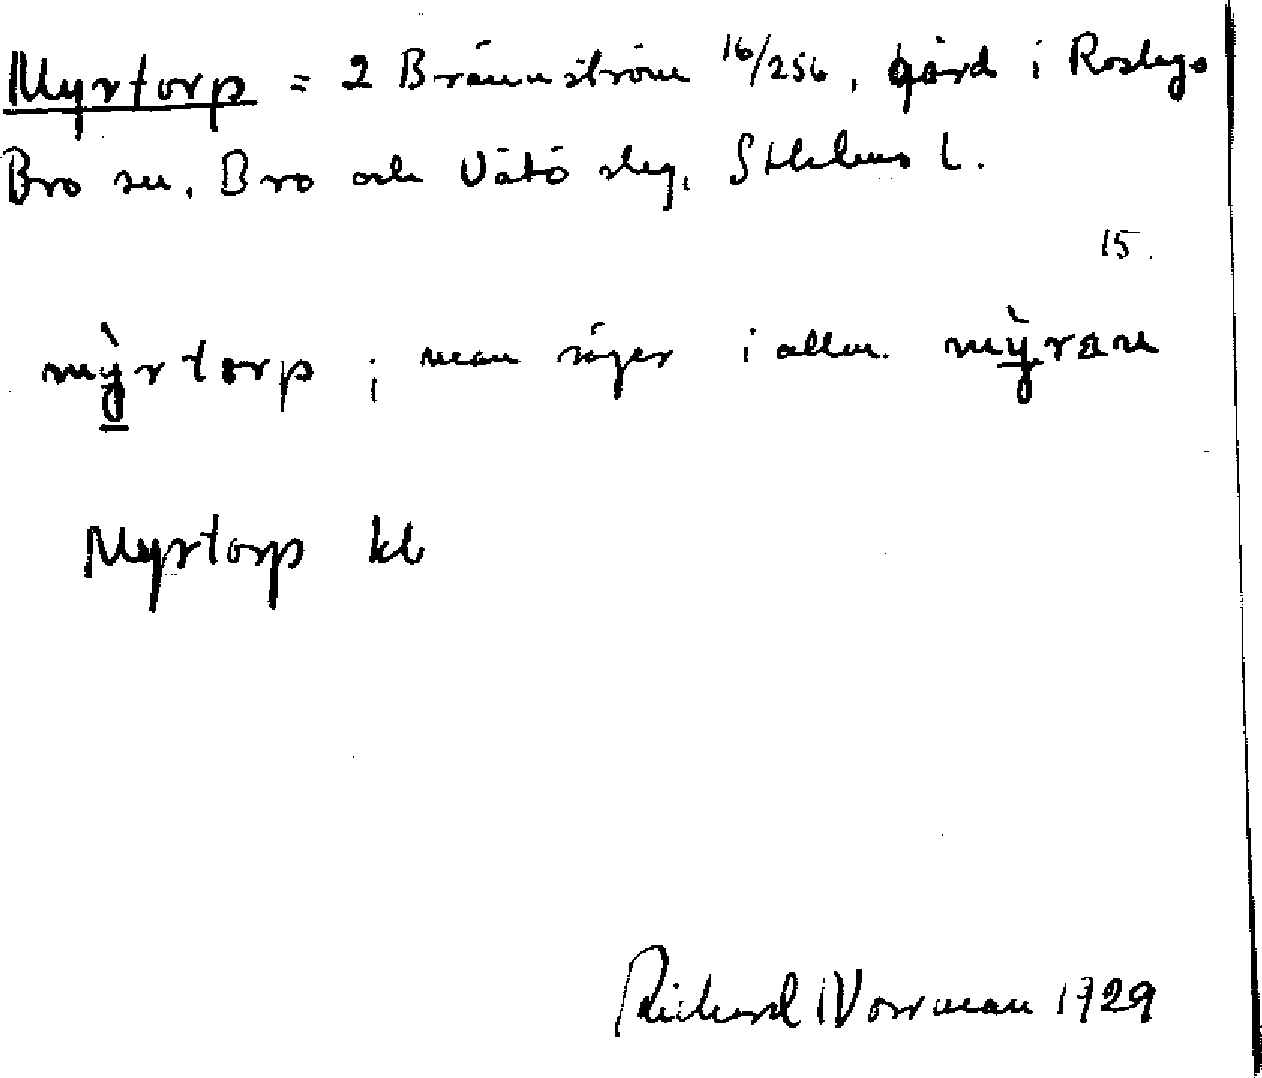 Myrtorp = 2 Brännström 16/256, gård i Roslags
Bro sn, Bro och Vätö skg, Sthlms l.
15.
mỳrtorp ; man säger i allm. mỳran
Myrtorp kb
Richard Norrman 1929